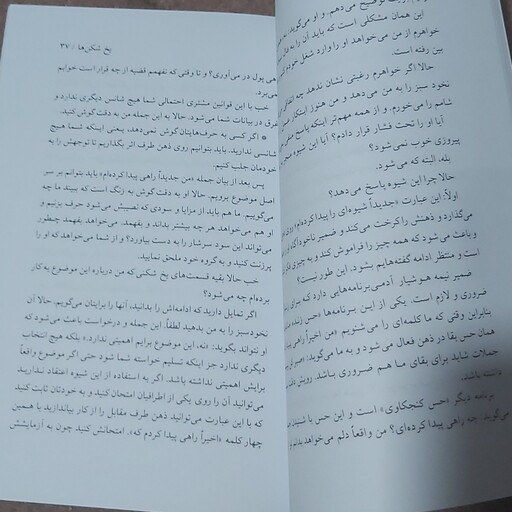 توضیح می‌دهم. و او می‌گوید:
این همان مشکلی است که باید آن را به فال
خواهرم از من می‌خواهد او را وارد شغل خودم
بین رفته است.
حالا: اگر خواهرم رغبتی نشان ندهد چه
نخود سبز را به من می‌دهد و من هنوز ابتکار
شامم را می‌خورم. و از همه مهم‌تر اینکه پاسخ
آیا او را تحت فشار قرار دادم؟ آیا این شیوه
پیروزی خوب نمی‌شود؟
بله، البته که می‌شود.
حالا چرا این شیوه پاسخ می‌دهد؟
اولاً: این عبارت «جدیداً شیوه‌ای را پیدا کرده‌ام» روی
می‌گذارد و ذهنش را کرخت می‌کند و ضمیر ناخودآگاه او
و باعث می‌شود که همه چیز را فراموش کند و به چیزی
است و منتظر ادامه گفته‌هایم بشود: این طور نیست؟
ضمیر نیمه هوشیار آدمی برنامه‌هایی دارد که برای
ضروری و لازم است. یکی از این برنامه‌ها «حس
بنابراین وقتی که ما کلمه‌ای را می‌شنویم «من اخیراً راهی
همان حس بقا در ذهن فعال می‌شود و به ما می‌گوید:
جملات شاید برای بقای ما هم ضروری باشد. رویش
داشته باشد.
برنامه دیگر «حس کنجکاوی» است و این حس با شنیدن
می‌گوید: چه راهی پیدا کرده‌ای؟ من واقعاً دلم می‌خواهد بدانم
یخ شکن‌ها / ۳۷
هی پول در می‌آوری؟ و تا وقتی که نفهمم قضیه از چه قرار است خوابم
می‌برد.
خب با این قوانین مشتری احتمالی شما هیچ شانس دیگری ندارد و
رق در بیانات شما می‌شود. حالا به این جمله من به دقت گوش کنید.
* اگر کسی به حرف‌هایتان گوش نمی‌دهد، یعنی اینکه شما هیچ
شانسی ندارید. باید بتوانیم روی ذهن طرف اثر بگذاریم تا توجهش را به
خودمان جلب کنیم.
پس بعد از بیان جمله «من جدیداً راهی پیدا کرده‌ام» باید بتوانم بر سر
اصل موضوع برویم. حالا او به دقت گوش به زنگ است که ببیند ما چه
می‌گوییم. ما هم باید از مزایا و سودی که نصیبش می‌شود حرف بزنیم و
او هم می‌خواهد هر چه بیشتر بداند و بفهمد. می‌خواهد بفهمد چطور
می‌تواند این سود سرشار را به دست بیاورد؟ و از شما می‌خواهد که او را
پرزنت کنید و به گروه خود ملحق نمایید.
خب حالا بقیه قسمت‌های یخ شکنی که من درباره این موضوع به کار
برده‌ام چه می‌شود؟
اگر تمایل دارید که ادامه‌اش را بدانید، آنها را برایتان می‌گویم. حالا آن
نخود سبز را به من بدهید لطفاً. این جمله و درخواست باعث می‌شود که
او نتواند بگوید: «نه، این موضوع برایم اهمیتی ندارد.» بلکه هیچ انتخاب
دیگری ندارد جز اینکه تسلیم خواسته شما شود حتی اگر موضوع واقعاً
برایش اهمیتی نداشته باشد. اگر به استفاده از این شیوه اعتقاد ندارید
می‌توانید آن را روی یکی از اطرافیان امتحان کنید و به خودتان ثابت کنید
که با این عبارت می‌توانید ذهن طرف مقابل را از کار بیاندازید با همین
چهار کلمه «اخیراً راهی پیدا کردم که». امتحانش کنید چون به آزمایشش